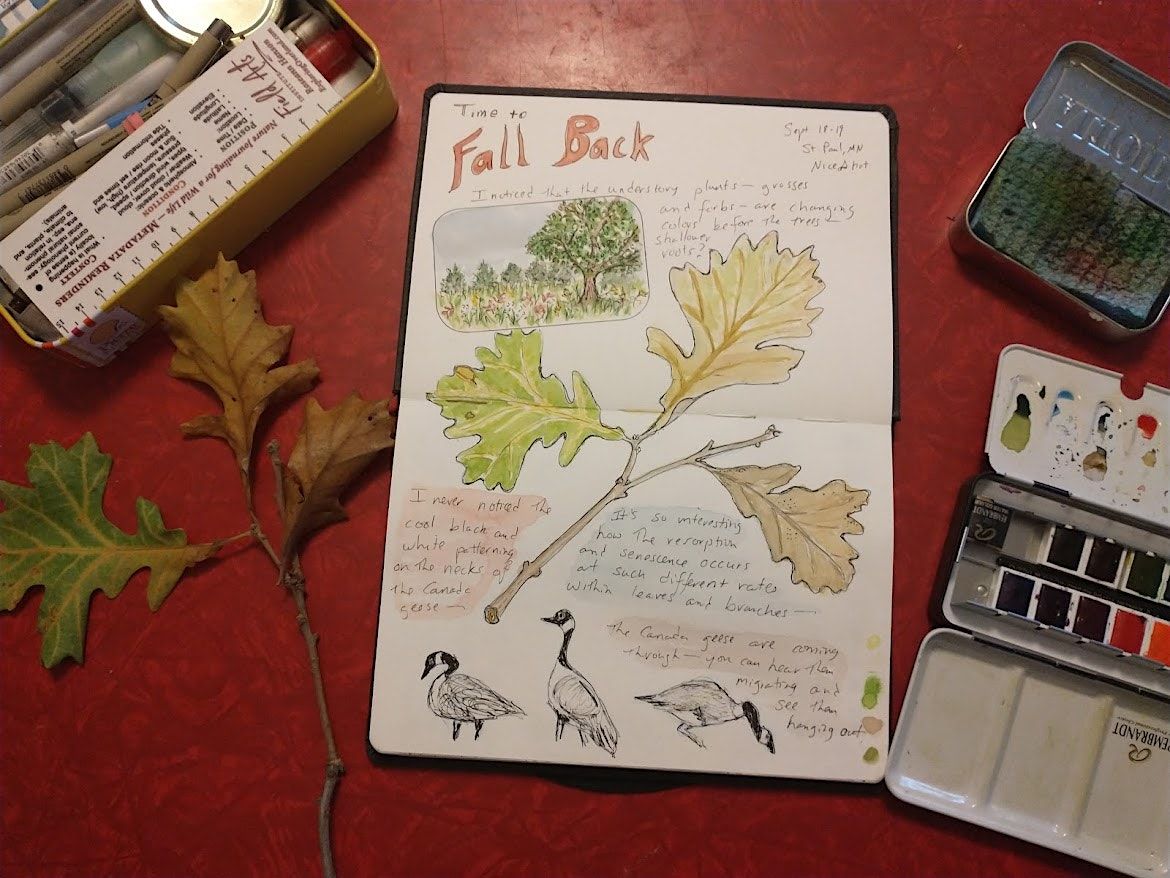 Time to
Fall Back
Sept 18-19
St Paul, MN
Nice & hot
I noticed that the understory plants — grasses
and forbs — are changing
colors before the trees —
shallower
roots?
I never noticed the
cool black and
white patterning
on the necks of
the Canada
geese —
It's so interesting
how the resorption
and senescence occurs
at such different rates
within leaves and branches —
The Canada geese are coming
through — you can hear them
migrating and
see them
hanging out
Field Arts
Nature Journaling for a Wild Life — Metadata Reminders
Position
Date / Time
Name
Location
Latitude
Longitude
Elevation
Condition
Context
REMBRANDT
REMBRANDT